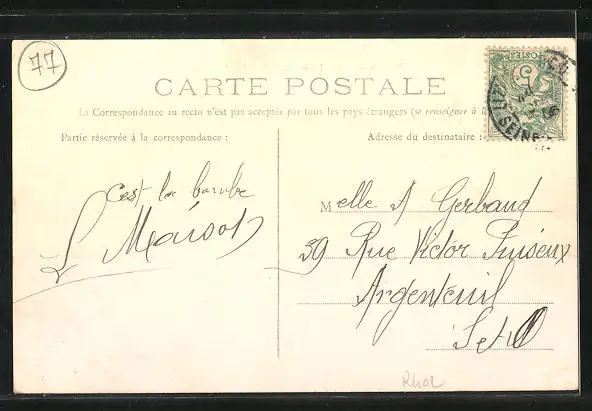 77
CARTE POSTALE
La Correspondance au recto n'est pas acceptée par tous les pays étrangers (se renseigner à la
Partie réservée à la correspondance :
Adresse du destinataire :
POSTES
5
SEINE
C'est la
L Maison
Melle A Gerbaud
39 Rue Victor Puiseux
Argenteuil
S et O